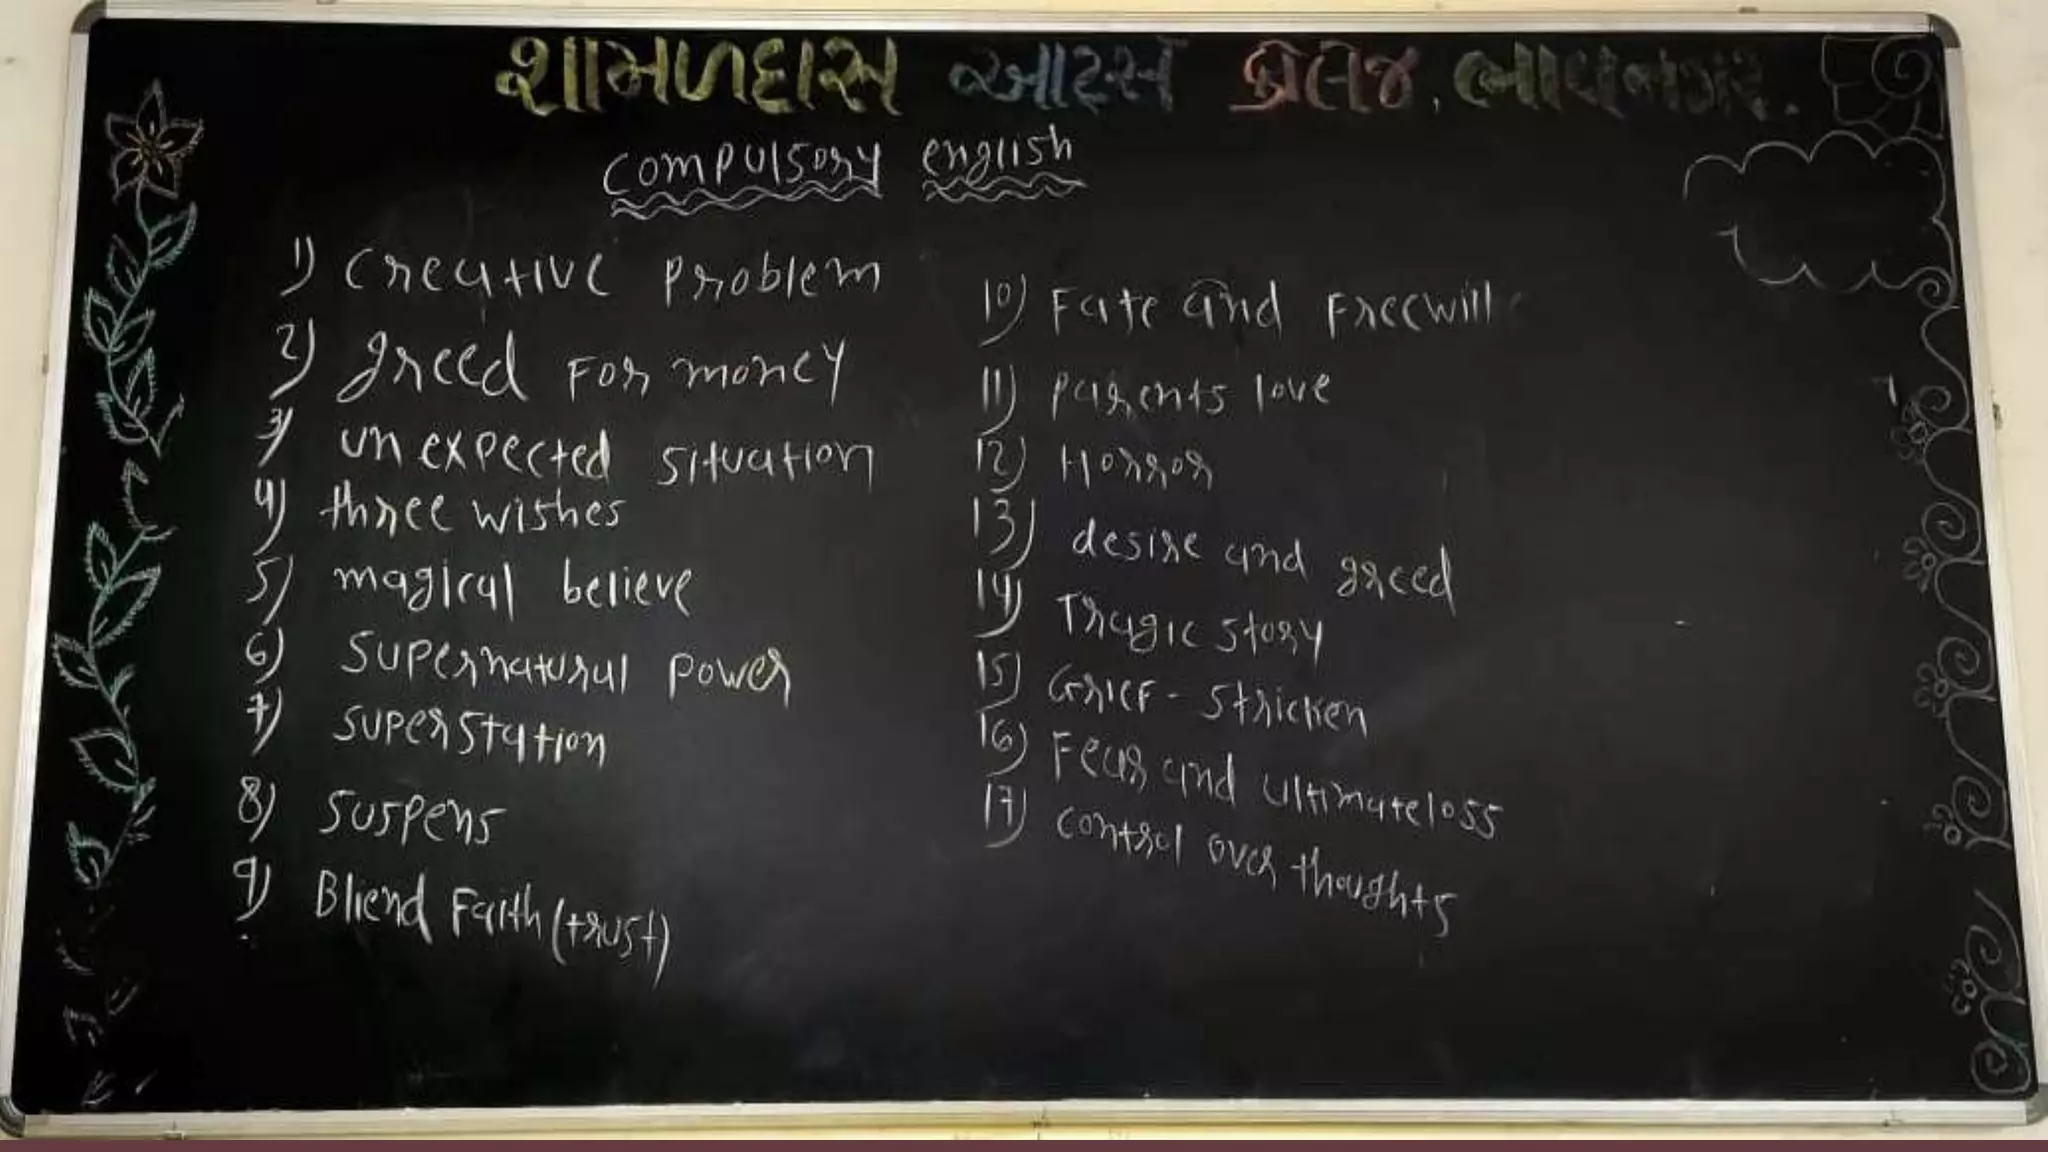 શામળદાસ આર્ટસ કોલેજ, ભાવનગર.
compulsory english
1) creative problem
2) greed For money
3) unexpected situation
4) three wishes
5) magical believe
6) supernatural power
7) superstation
8) suspens
9) Bliend Faith (trust)
10) Fate and Freewill
11) parents love
12) Horror
13) desire and greed
14) Tragic story
15) Grief - stricken
16) Fear and ultimate loss
17) control over thoughts